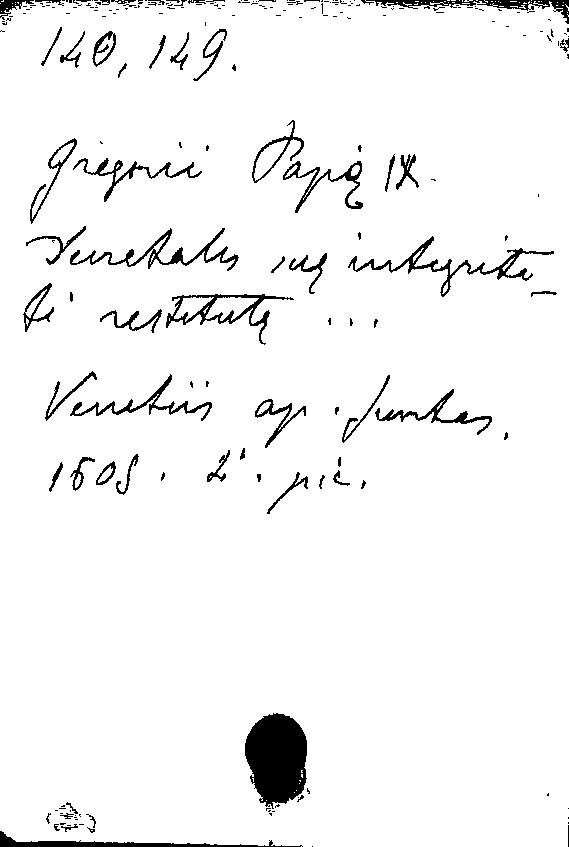 140, 149.
Gregorii Papę IX.
Decretales suę integrita-
ti restitutę ...
Venetiis ap. Juntas.
1605. 2°.